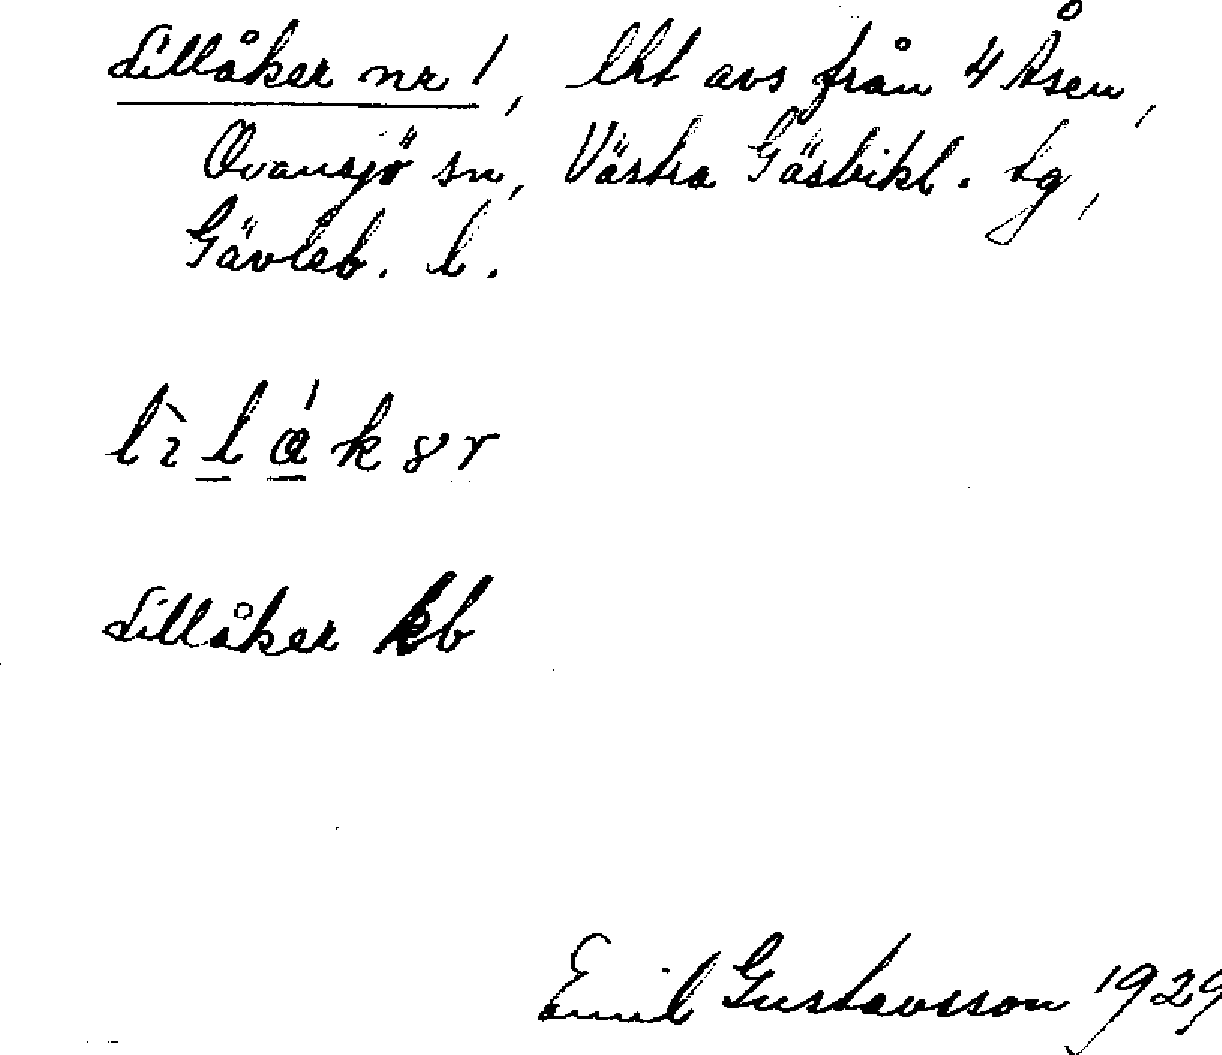 Lillåker nr 1, lht avs från 4 Åsen,
Ovansjö sn, Västra Gästrikl. tg,
Gävleb. l.
lìlåkər
Lillåker kb
Emil Gustavsson 1929